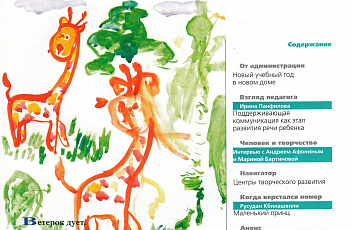 Содержание
От администрации
Новый учебный год
в новом доме
Взгляд педагога
Ирина Панфилова
Поддерживающая
коммуникация как этап
развития речи ребенка
Человек и творчество
Интервью с Андреем Афониным
и Мариной Бартиновой
Навигатор
Центры творческого развития
Когда верстался номер
Русудан Кбилашвили
Маленький принц
Анонс
Ветерок дует.